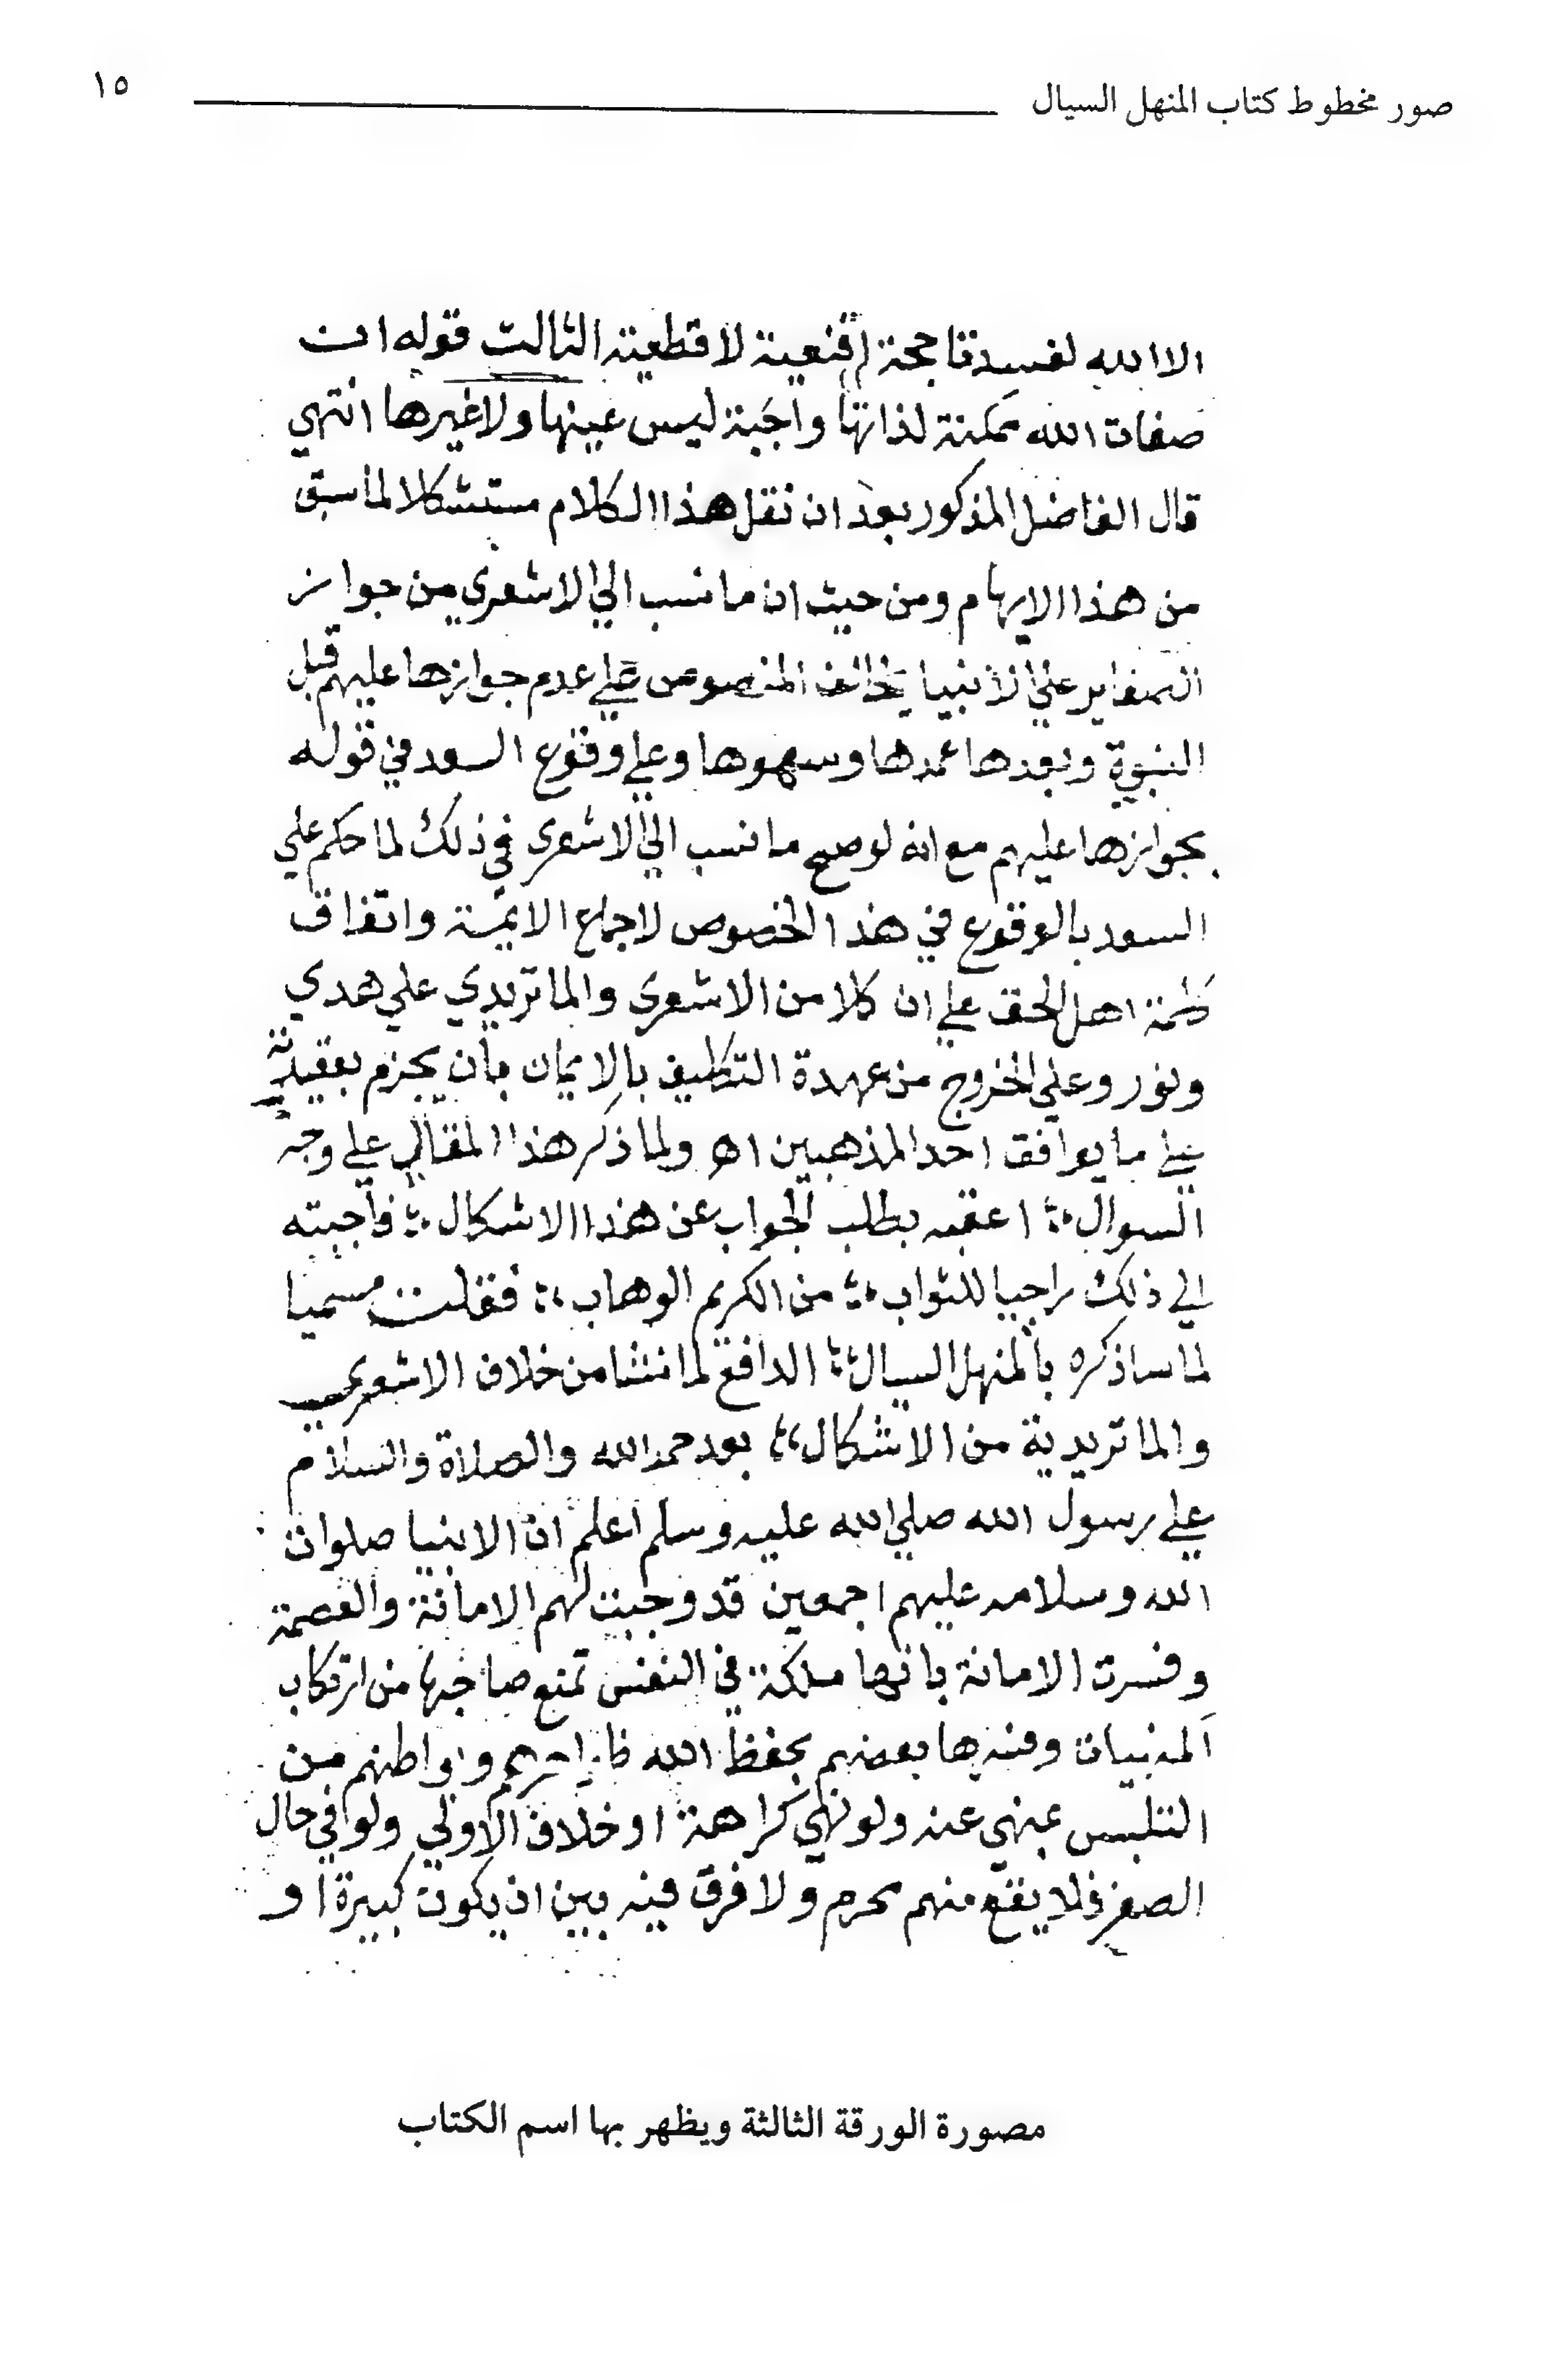 صور مخطوط كتاب المنهل السيال ١٥
الا الله لفسدتا حجة اقنعية لا قطعية الثالث قوله ان
صفات الله ممكنة لذاتها واجبة ليس عينها ولا غيرها انتهي
قال الفاضل المذكور بعد ان نقل هذا الكلام مستشكلا لما سبق
من هذا الايهام ومن حيث ان ما نسب الي الاشعري من جواز
الصغاير علي الانبيا يخالف المنصوص علي عدم جوازها عليهم قبل
النبوة وبعدها عمدها وسهوها وعلي وقوع السعد في قوله
بجوازها عليهم مع انه لو صح ما نسب الي الاشعري في ذلك لما حكم علي
السعد بالوقوع في هذا الخصوص لاجماع الايمة واتفاق
كلمة اهل الحق علي ان كلا من الاشعري والماتريدي علي هدي
ونور وعلي الخروج من عهدة التكليف بالايمان بان يجزم بعقيدته
علي ما يوافق احد المذهبين اه ولما ذكر هذا المقال علي وجه
السوال اعقبه بطلب الجواب عن هذا الاشكال فاجبته
الي ذلك راجيا للثواب من الكريم الوهاب فقلت مسميا
لما ساذكره بالمنهل السيال الدافع لما نشا من خلاف الاشعري
والماتريدية من الاشكال بعد حمد الله والصلاة والسلام
علي رسول الله صلي الله عليه وسلم اعلم ان الانبيا صلوات
الله وسلامه عليهم اجمعين قد وجبت لهم الامانة والعصمة
وفسرت الامانة بانها ملكة في النفس تمنع صاحبها من ارتكاب
المنهيات وفسرها بعضهم بحفظ الله ظواهرهم وبواطنهم من
التلبس بمنهي عنه ولو نهي كراهة او خلاف الاولي ولو في حال
الصغر فلا يقع منهم محرم ولا فرق فيه بين ان يكون كبيرة او
مصورة الورقة الثالثة ويظهر بها اسم الكتاب